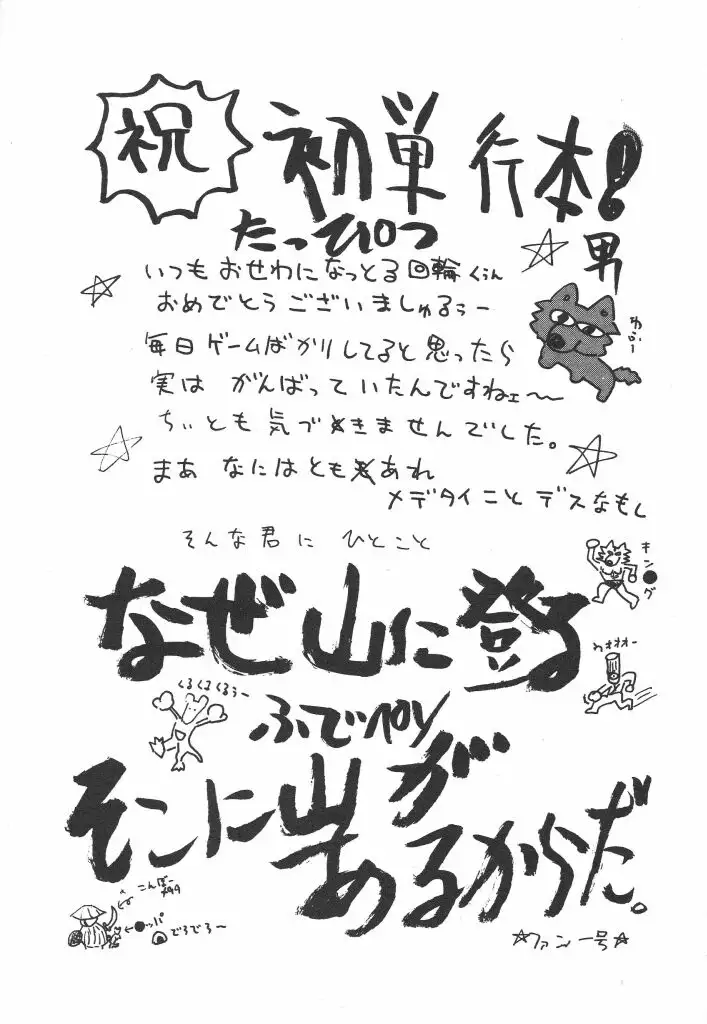 祝 初単行本!
たっぴつ
男
いつもおせわになっとる回輪くぅん
おめでとうございましゅるぅー
毎日ゲームばかりしてると思ったら
実は がんばっていたんですねェ〜
ちぃとも気づきませんでした。
まあ なにはともあれ
メデタイことデスなもし
そんな君に ひとこと
なぜ山に登る
キン●グ
わオオオー
くるくるくるぅー
ふでペん
そこに山が
あるからだ。
こんぼー
←●ッパ
でろでろ〜
☆ファン一号☆